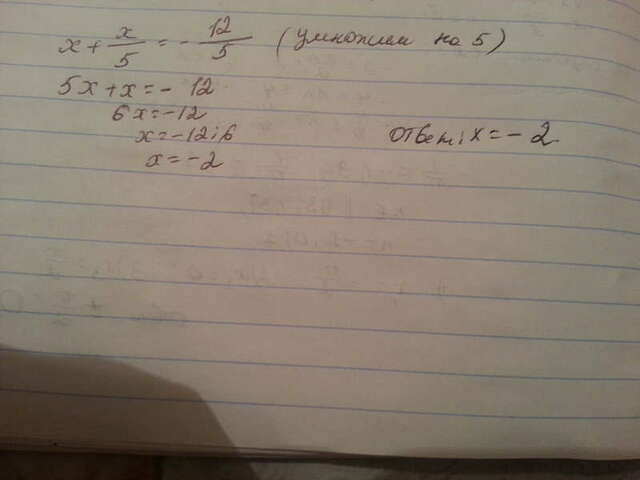 x + x/5 = - 12/5 (умножим на 5)
5x + x = - 12
6x = -12
x = -12 : 6
x = -2
Ответ: x = - 2